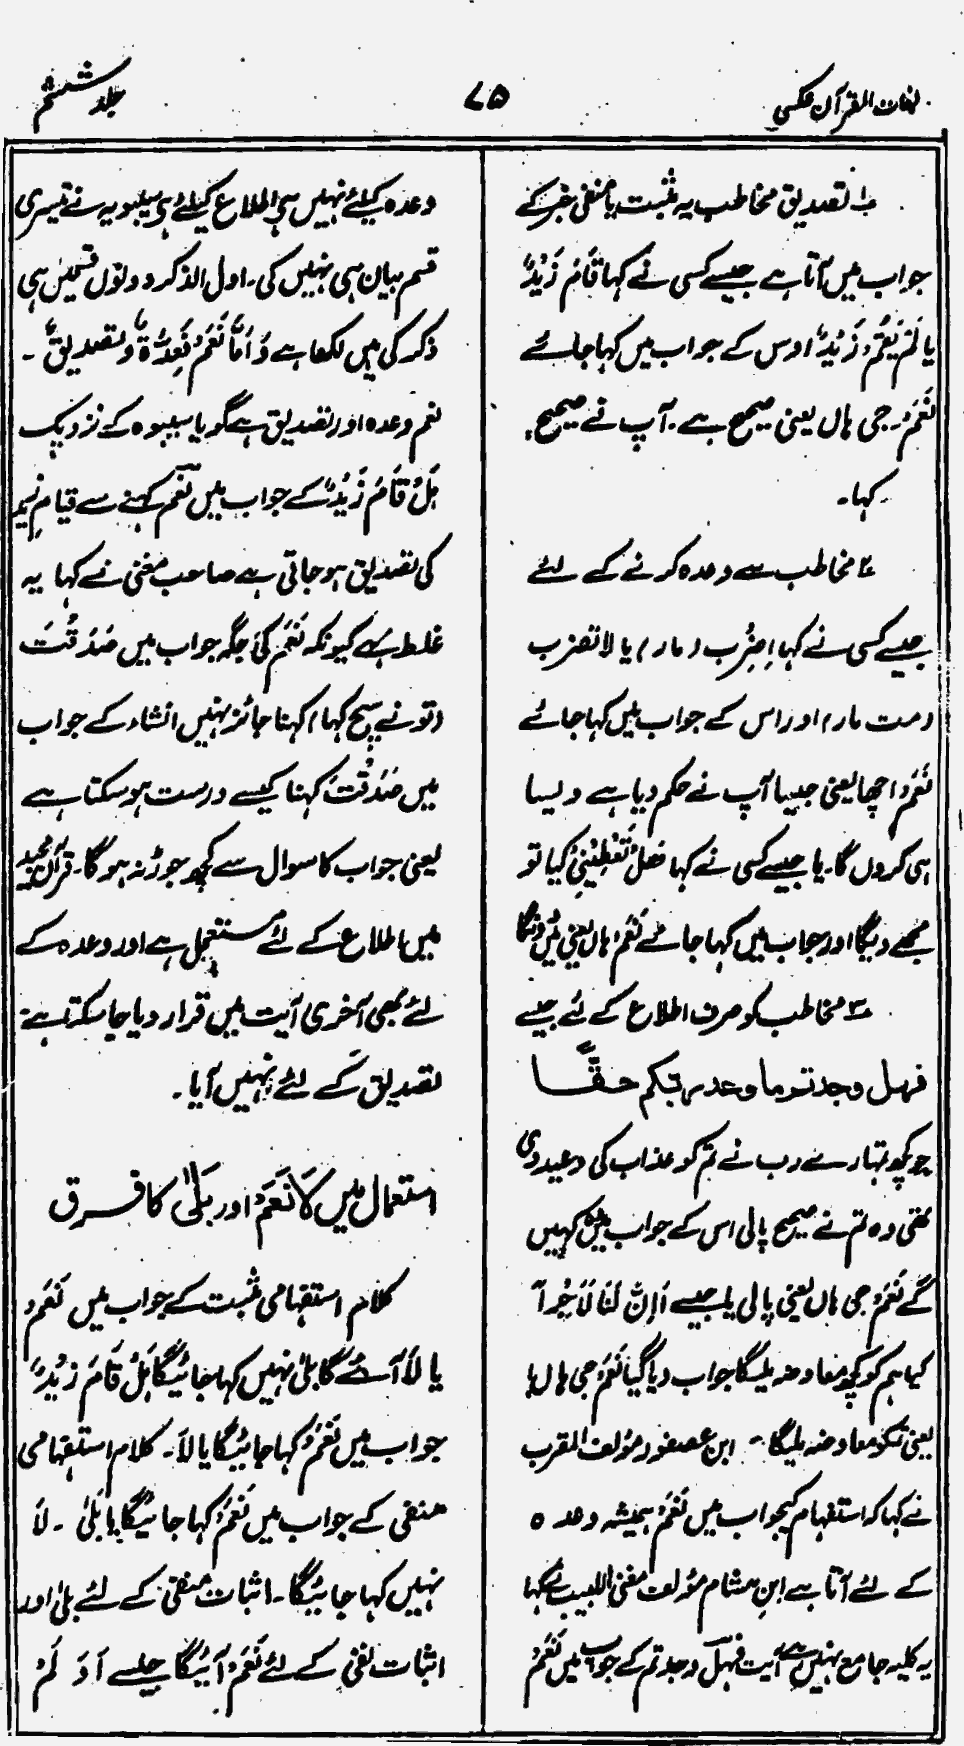 لغات القرآن عکسی
۷۵
جلد ششم
۱؎ تصدیق مخاطب یہ مثبت یا منفی خبر کے
جواب میں آتا ہے جیسے کسی نے کہا قَامَ زَیْدٌ
یا لَمْ یَقُمْ زَیْدٌ اور اس کے جواب میں کہا جائے
نَعَمْ۔ جی ہاں یعنی صحیح ہے۔ آپ نے صحیح
کہا۔
۲؎ مخاطب سے وعدہ کرنے کے لئے
جیسے کسی نے کہا اِضْرِب (مار) یا لا تضرب
(مت مار) اور اس کے جواب میں کہا جائے
نَعَمْ اچھا یعنی جیسا آپ نے حکم دیا ہے ویسا
ہی کروں گا۔ یا جیسے کسی نے کہا ھَلْ تُعْطِیْنِیْ کیا تو
مجھے دیگا اور جواب میں کہا جائے نَعَمْ ہاں یعنی میں دونگا
۳؎ مخاطب کو صرف اطلاع کے لئے جیسے
فهل وجدتم ما وعد ربکم حقًّا
جو کچھ تمہارے رب نے تم کو عذاب کی وعید دی
تھی وہ تم نے صحیح پالی اس کے جواب میں کہیں
گے نَعَمْ جی ہاں یعنی پالی یا جیسے اَاِنَّ لَنَا لَاَجْرًا
کیا ہم کو کچھ معاوضہ ملیگا جواب دیا گیا نَعَمْ جی ہاں
یعنی تمکو معاوضہ ملیگا۔ ابن عصفور مؤلف المقرب
نے کہا کہ استفہام کیجواب میں نَعَمْ ہمیشہ وعدہ
کے لئے آتا ہے ابن ہشام مؤلف مغنی اللبیب نے کہا
یہ کلیہ جامع نہیں ہے آیت فہل وجدتم کے جواب میں نَعَمْ
وعدہ کیلئے نہیں ہے اطلاع کیلئے ہی سیبویہ نے تیسری
قسم بیان ہی نہیں کی۔ اول الذکر دونوں قسمیں ہی
ذکر کی ہیں لکھا ہے وَاَمَّا نَعَمْ فَعِدَةٌ و تصدیقٌ۔
نعم وعدہ اور تصدیق ہے گویا سیبویہ کے نزدیک
ہَلْ قَامَ زَیْدٌ کے جواب میں نعم کہنے سے قیامِ زید
کی تصدیق ہو جاتی ہے صاحب مغنی نے کہا یہ
غلط ہے کیونکہ نَعَم کی جگہ جواب میں صَدَقْتَ
(تو نے سچ کہا) کہنا جائز نہیں انشاء کے جواب
میں صَدَقْتَ کہنا کیسے درست ہو سکتا ہے
یعنی جواب کا سوال سے کچھ جوڑ نہ ہو گا۔ قرآن مجید
میں اطلاع کے لئے مستعمل ہے اور وعدہ کے
لئے بھی آخری آیت میں قرار دیا جا سکتا ہے۔
تصدیق کے لئے نہیں آیا۔
استعمال میں لَا نَعَمْ اور بَلٰی کا فرق
کلام استفہامی مثبت کے جواب میں نَعَمْ
یا لَا آئے گا بلی نہیں کہا جائیگا ہَلْ قَامَ زَیْدٌ
جواب میں نَعَمْ کہا جائیگا یا لَا۔ کلام استفہامی
منفی کے جواب میں نَعَمْ کہا جائیگا یا بَلٰی۔ لَا
نہیں کہا جائیگا۔ اثبات منفی کے لئے بلیٰ اور
اثبات نفی کے لئے نَعَمْ آئیگا جیسے اَوَ لَمْ